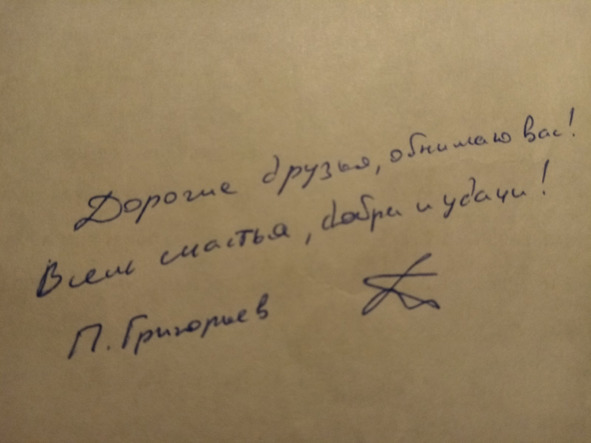 Дорогие друзья, обнимаю вас!
Всем счастья, добра и удачи!
П. Григорьев